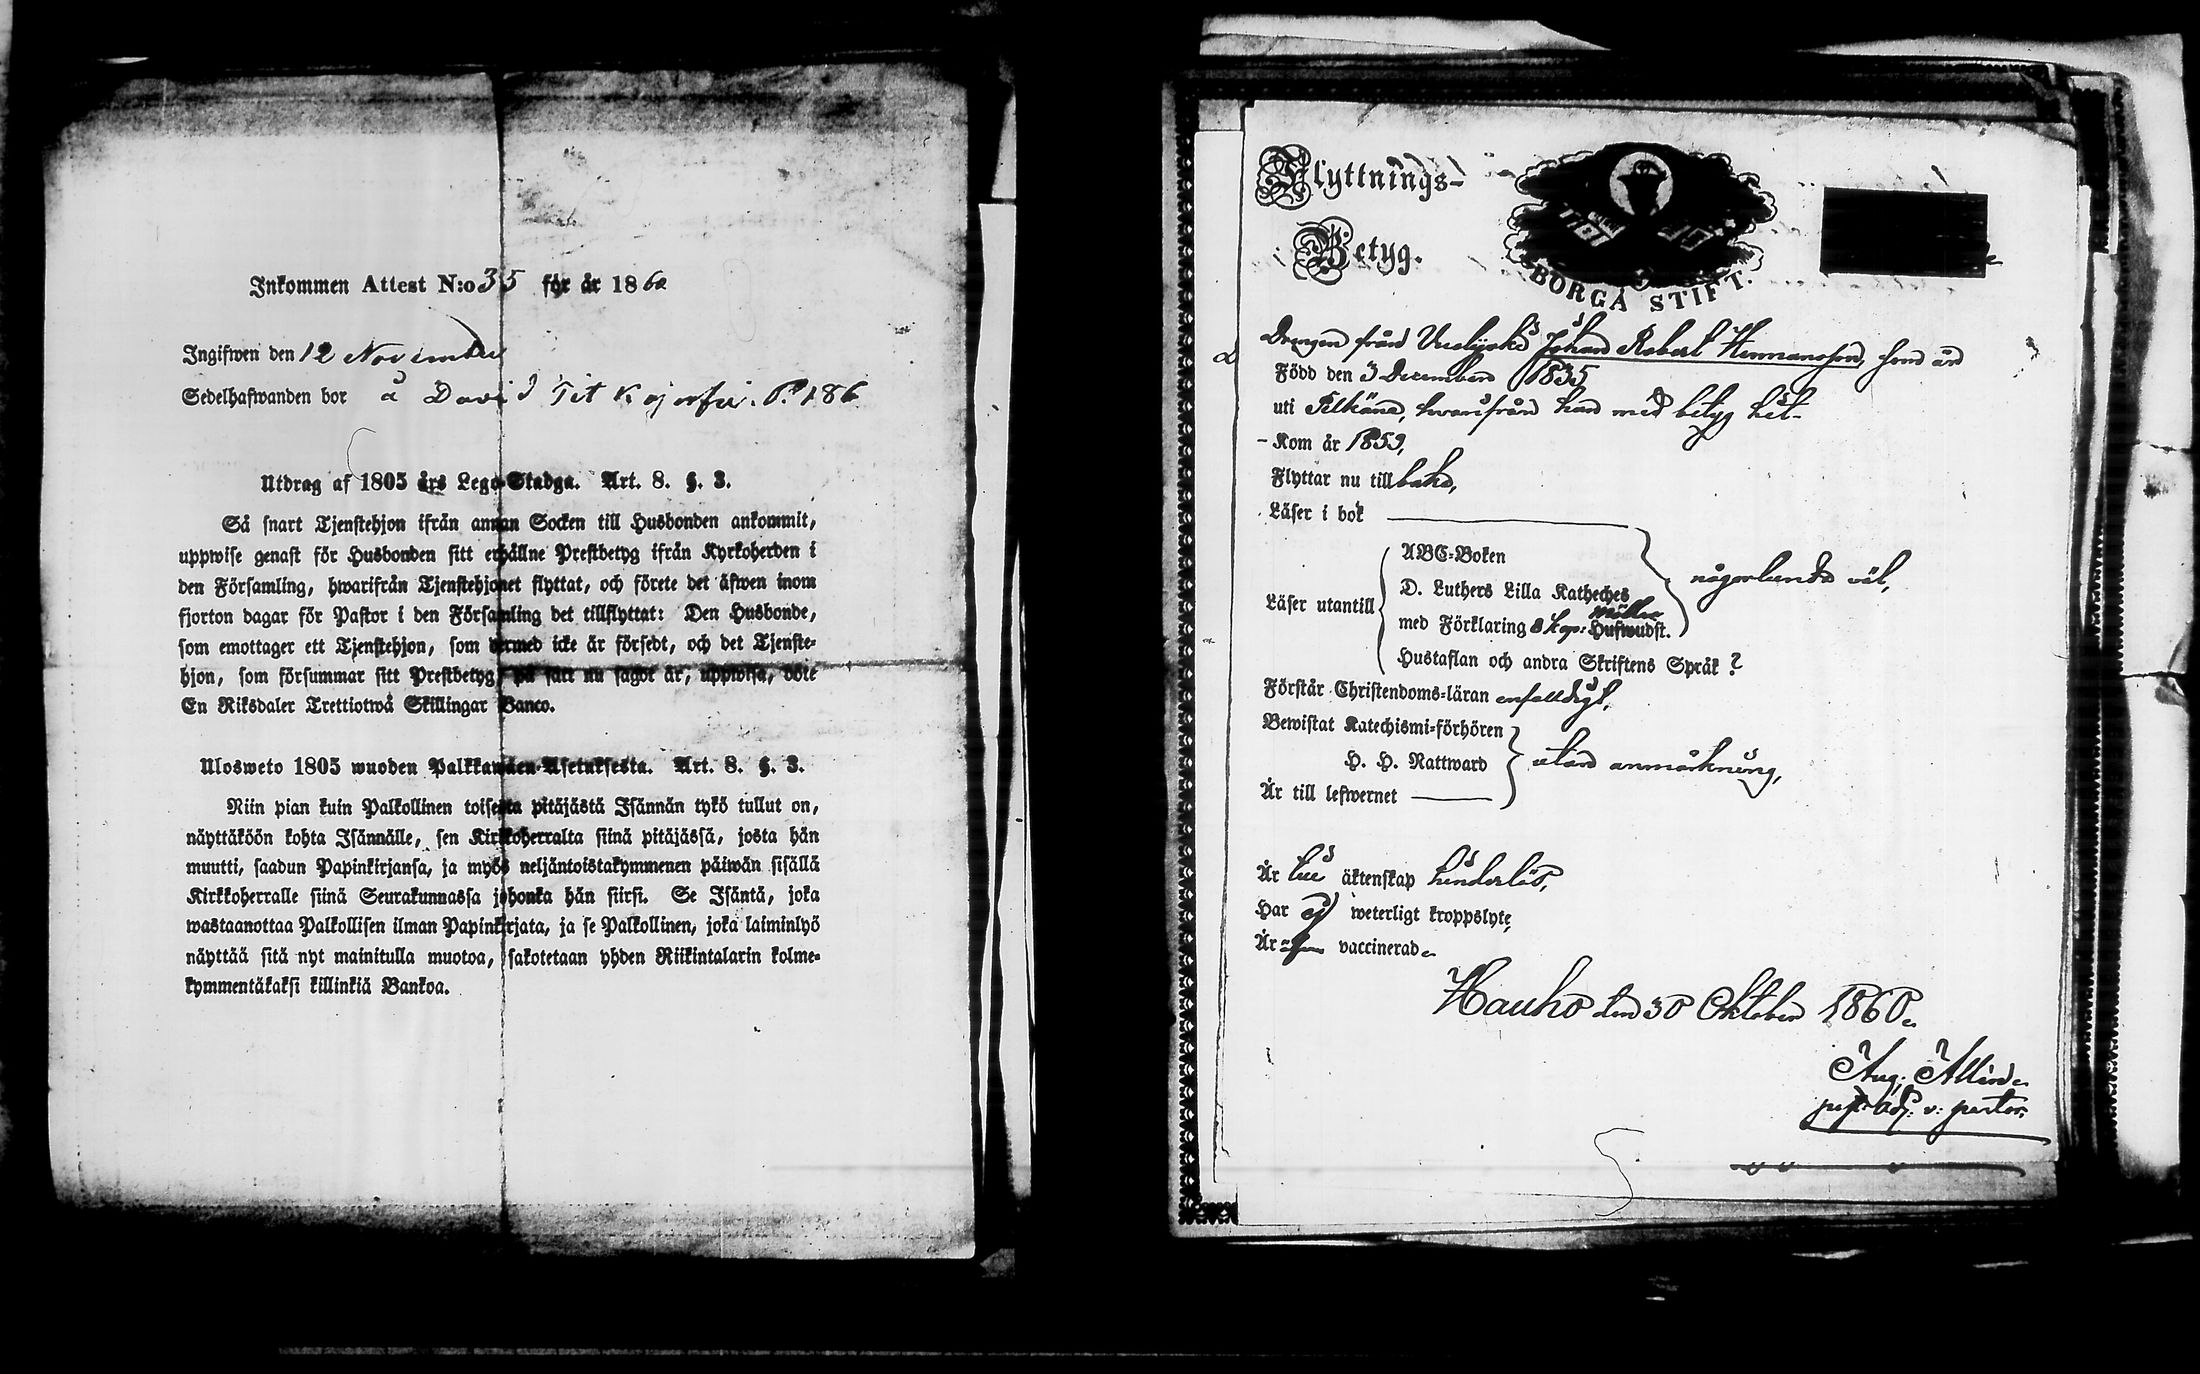 Inkommen Attest N:o 35 för år 1860
Ingifwen den 12 November
Sedelhafwanden bor å David Tit P. 186
Utdrag af 1805 års Lego-Stadga. Art. 8. §. 3.
Så snart Tjenstehjon ifrån annan Socken till Husbonden ankommit,
uppwise genast för Husbonden sitt erhållne Prestbetyg ifrån Kyrkoherden i
den Församling, hwarifrån Tjenstehjonet flyttat, och förete det äfwen inom
fjorton dagar för Pastor i den Församling det tillflyttat: Den Husbonde,
som emottager ett Tjenstehjon, som dermed icke är försedt, och det Tjenste-
hjon, som försummar sitt Prestbetyg, på sätt nu sagdt är, uppwisa, böte
En Riksdaler Trettiotwå Skillingar Banco.
Ulosweto 1805 wuoden Palkkawäen-Asetuksesta. Art. 8. §. 3.
Niin pian kuin Palkollinen toisesta pitäjästä Isännän tykö tullut on,
näyttäköön kohta Isännälle, sen Kirkkoherralta siinä pitäjässä, josta hän
muutti, saadun Papinkirjansa, ja myös neljäntoistakymmenen päiwän sisällä
Kirkkoherralle siinä Seurakunnassa johonka hän siirsi. Se Isäntä, joka
wastaanottaa Palkollisen ilman Papinkirjata, ja se Palkollinen, joka laiminlyö
näyttää sitä nyt mainitulla muotoa, sakotetaan yhden Riikintalarin kolme-
kymmentäkaksi killinkiä Bankoa.
Flyttnings-
Betyg.
BORGÅ STIFT.
Drengen från Johan Robert Hermansson, som är
Född den 3 December 1835
uti Pelkäne, hwarifrån han med betyg hit-
- Kom år 1859,
Flyttar nu tillbaka,
Läser i bok
Läser utantill
ABC-Boken
D. Luthers Lilla Katheches
med Förklaring 8 kap: Möller Hufwudst.
Hustaflan och andra Skriftens Språk ?
någorlunda väl,
Förstår Christendoms-läran enfaldigt,
Bewistat Katechismi-förhören
H. H. Nattward
utan anmärkning,
Är till lefwernet
Är till äktenskap hinderlös,
Har ej weterligt kroppslyte,
Är vaccinerad.
Hauho den 30 Oktober 1860.
Aug: Allind.
adj: v: pastor.